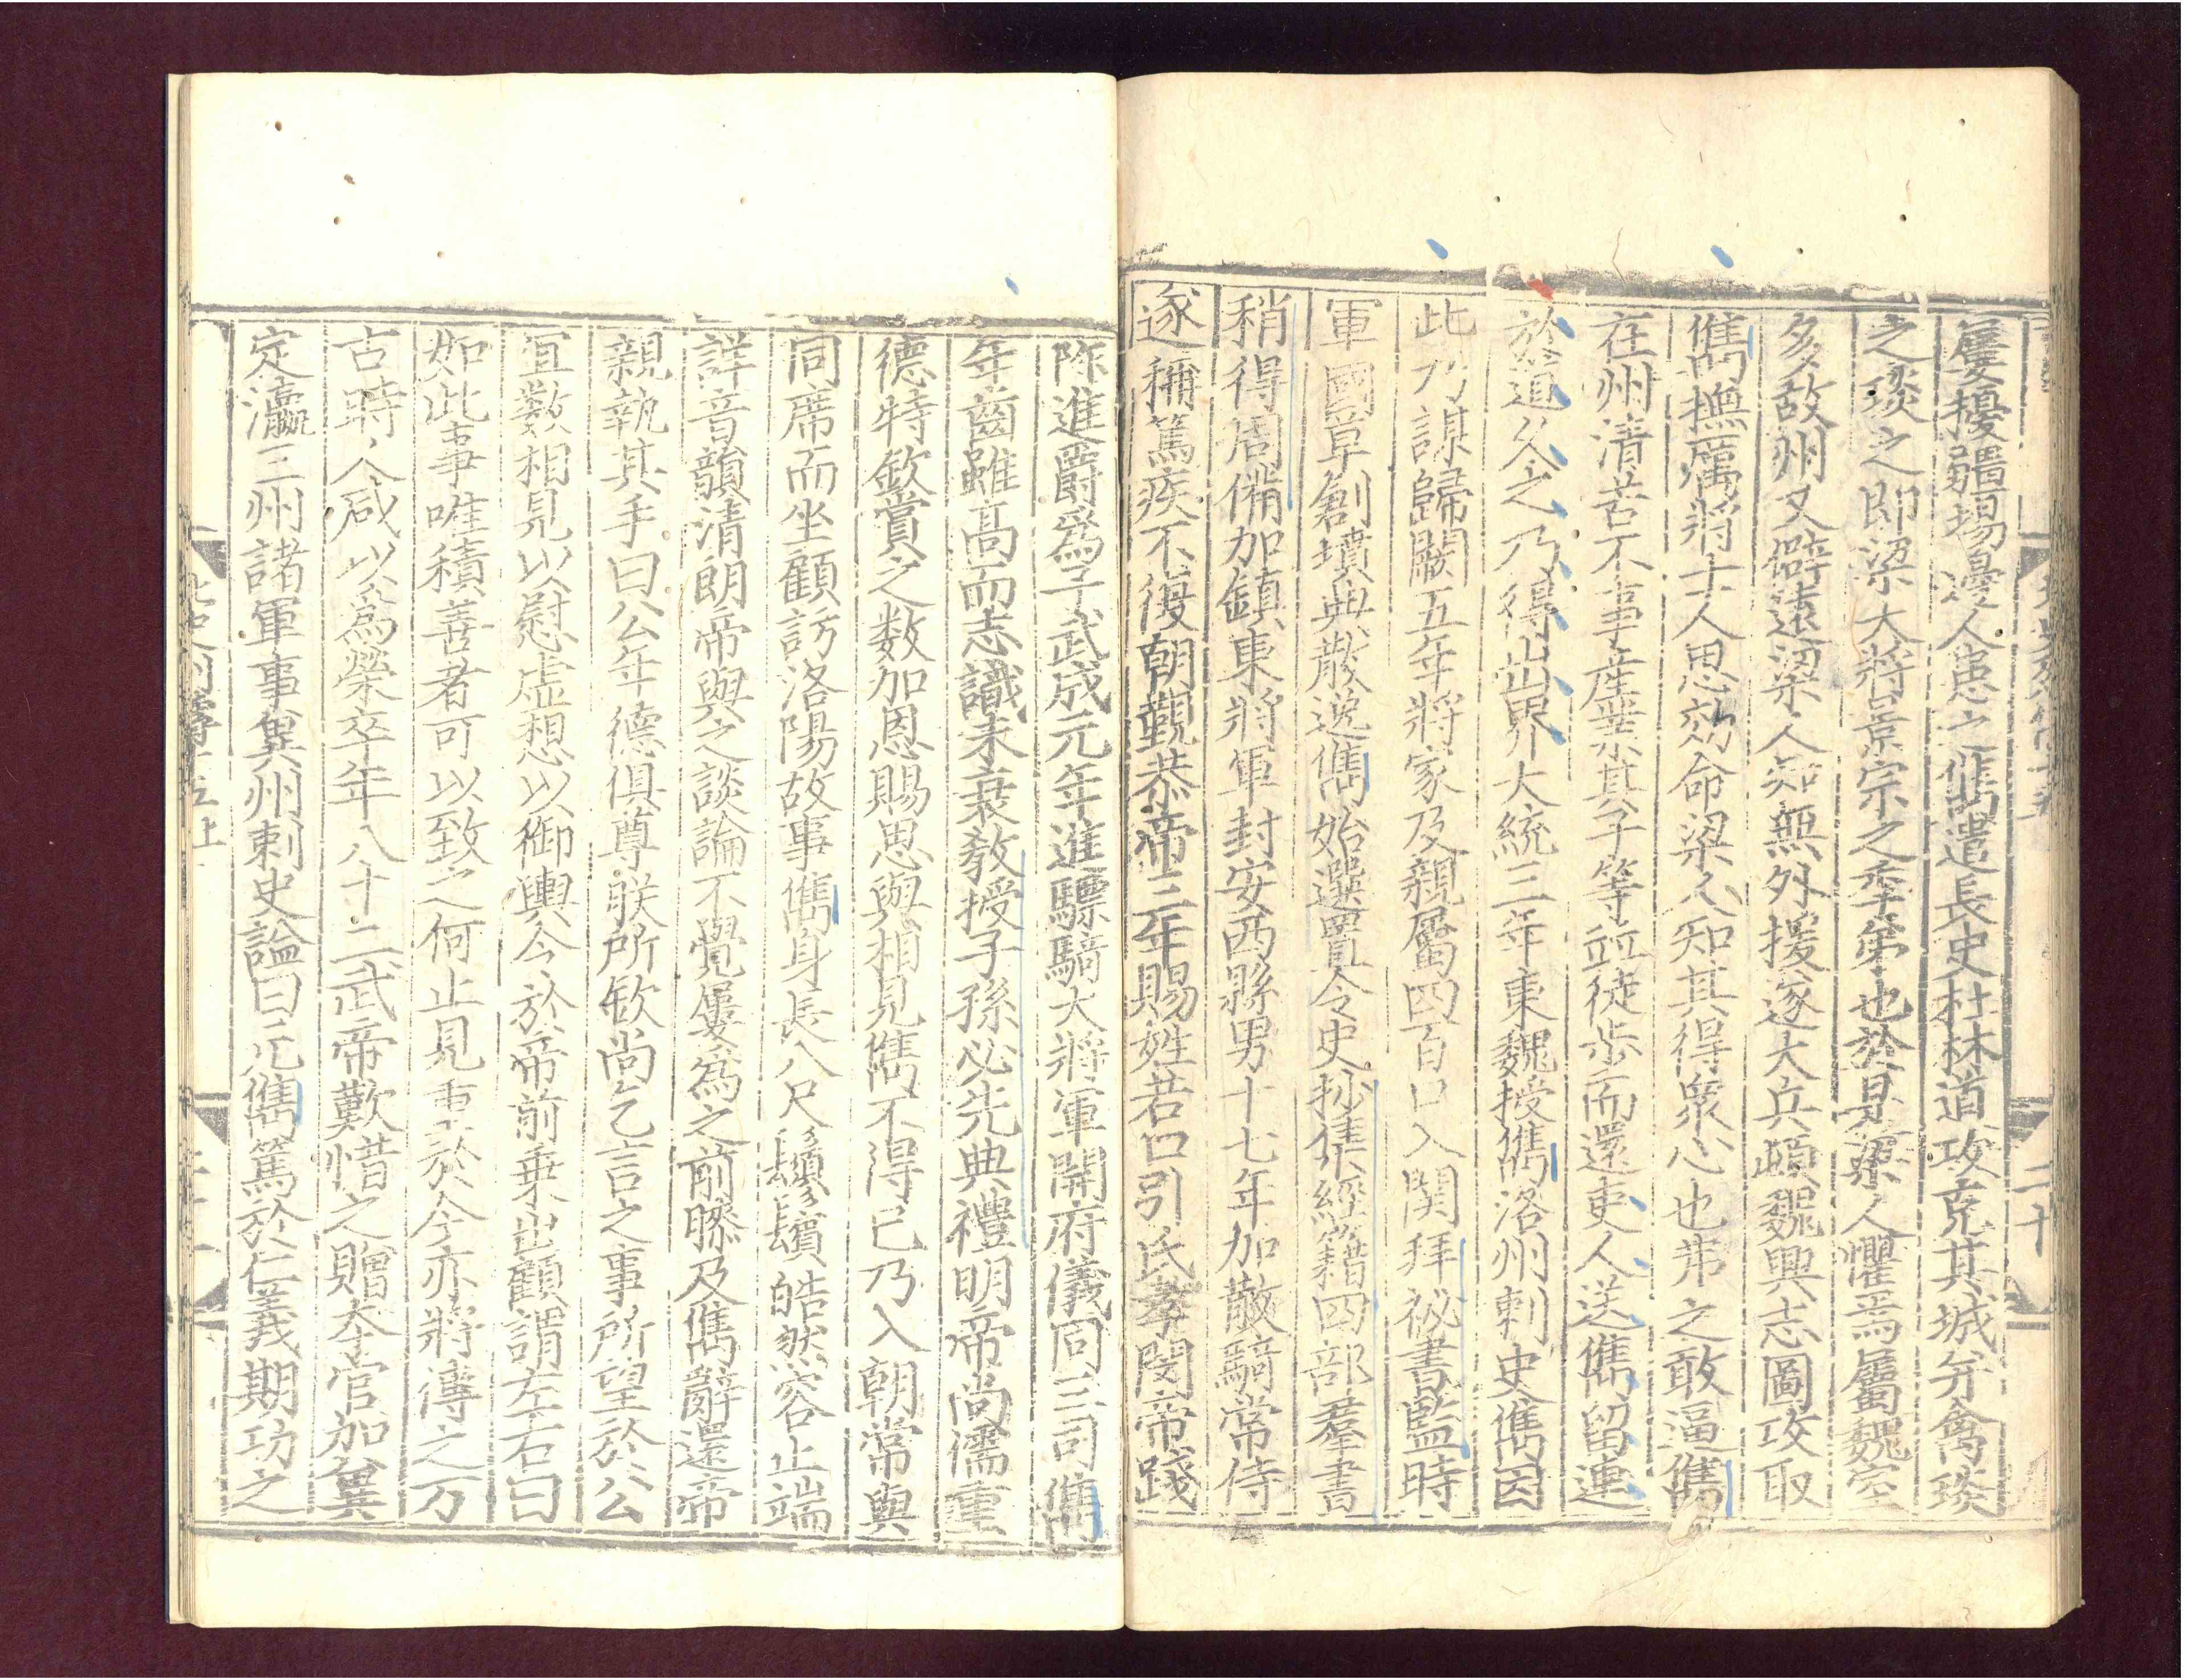 屢擾疆場邊人患之儁遣長史杜林道攻克其城并禽琰
之琰之即梁大將景宗之季弟也於是梁人懼焉屬魏室
多故州又僻遠梁人知無外援遂大兵頓魏興志圖攻取
儁撫厲將士人思効命梁人知其得衆心也弗之敢逼儁
在州清苦不事産業其子等並徒步而還吏人送儁留連
於道久之乃得出界大統三年東魏授儁洛州刺史儁因
此乃謀歸闕五年將家及親屬四百口入関拜祕書監時
軍國草創墳典散逸儁始選置令史抄集經籍四部羣書
稍得周備加鎮東將軍封安西縣男十七年加散騎常侍
遂稱篤疾不復朝覲恭帝三年賜姓若口引氏孝閔帝踐
阼進爵為子武成元年進驃騎大將軍開府儀同三司儁
年齒雖高而志識未衰教授子孫必先典禮明帝尚儒重
德特欽賞之数加恩賜思與相見儁不得已乃入朝常與
同席而坐顧訪洛陽故事儁身長八尺鬚鬢皓然容止端
詳音韻清朗帝與之談論不覺屢為之前膝及儁辭還帝
親執其手曰公年德俱尊朕所欽尚乞言之事所望於公
宜數相見以慰虚想以御輿令於帝前乗出顧謂左右曰
如此事唯積善者可以致之何止見重於今亦將傳之万
古時人咸以為榮卒年八十二武帝歎惜之贈本官加冀
定瀛三州諸軍事冀州刺史謚曰元儁篤於仁義期功之